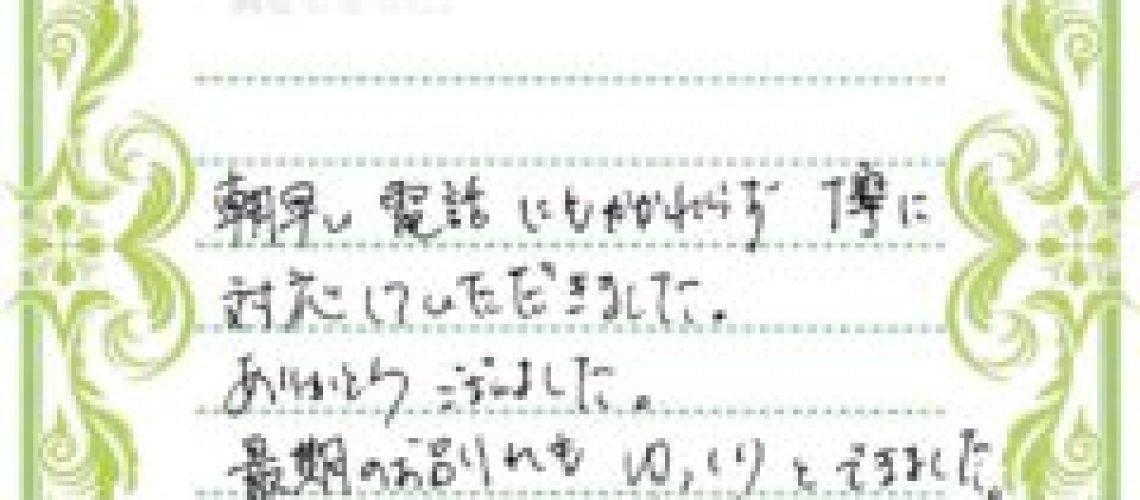 朝早い電話にもかかわらず 丁寧に
対応していただきました。
ありがとうございました。
最期のお別れも ゆっくりとできました。